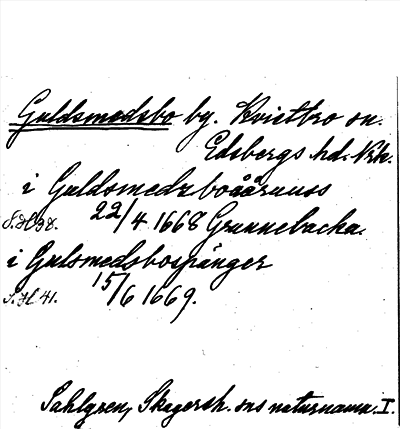 Guldsmedsbo by. Kvistbro sn.
Edsbergs hd. Nrk.
i Guldsmedzboååruuss
S. H 38. 22/4 1668 Grunnebacka.
i Gulsmedsbospånger
S. H 41. 15/6 1669.
Sahlgren, Skagersh. sns naturnamn. I.